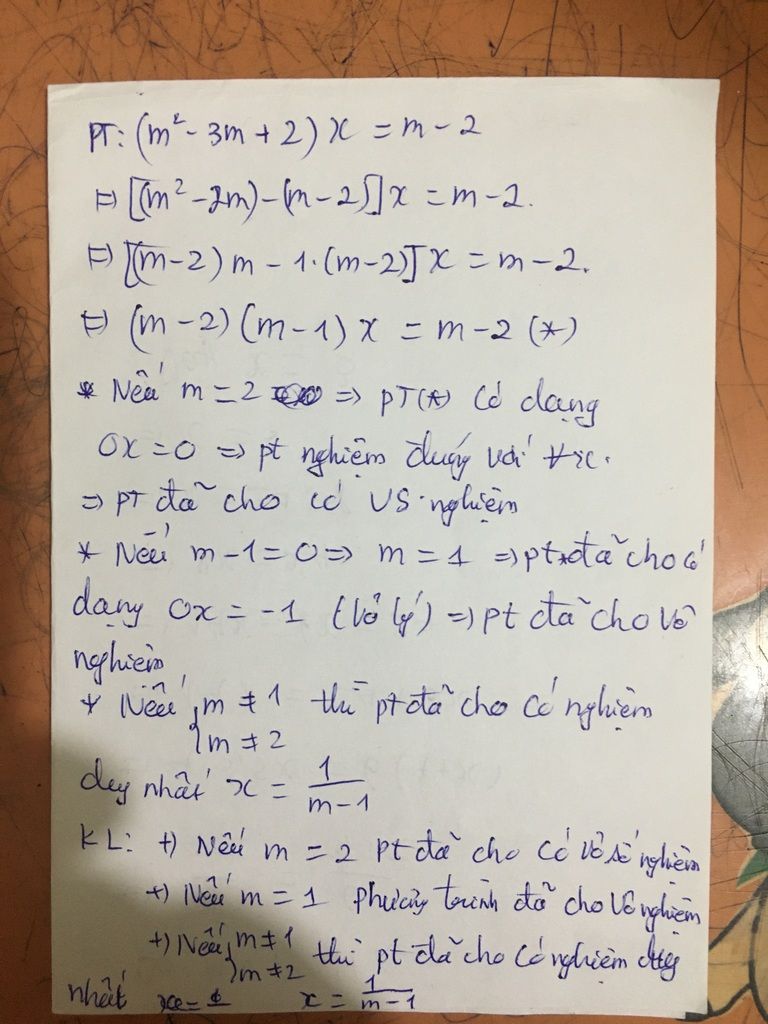 PT: (m² - 3m + 2) x = m - 2
⇔ [(m² - 2m) - (m - 2)] x = m - 2.
⇔ [(m - 2) m - 1.(m - 2)] x = m - 2.
⇔ (m - 2) (m - 1) x = m - 2 (*)
* Nếu m = 2 ⇒ PT(*) có dạng
0x = 0 ⇒ pt nghiệm đúng với ∀x.
⇒ PT đã cho có VS. nghiệm
* Nếu m - 1 = 0 ⇒ m = 1 ⇒ pt đã cho có
dạng 0x = -1 (vô lý) ⇒ pt đã cho vô
nghiệm
* Nếu { m ≠ 1 thì pt đã cho có nghiệm
m ≠ 2
duy nhất x = 1/(m - 1)
KL: +) Nếu m = 2 pt đã cho có vô số nghiệm
+) Nếu m = 1 phương trình đã cho vô nghiệm
+) Nếu { m ≠ 1 thì pt đã cho có nghiệm duy
m ≠ 2
nhất x = 1/(m - 1)